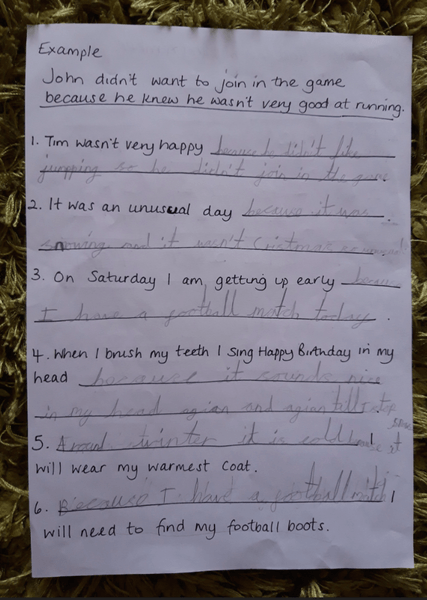 Example
John didn't want to join in the game
because he knew he wasn't very good at running.
1. Tim wasn't very happy because he didn't like
jumpping so he didn't join in the game
2. It was an unusual day because it was .
snowing and it wasn't Cristmas
3. On Saturday I am getting up early
I have a football match today .
4. When I brush my teeth I sing Happy Birthday in my
head because it sounds nice
in my head agian and agian
5. winter it is cold I
will wear my warmest coat.
6. Because I have a football match I
will need to find my football boots.